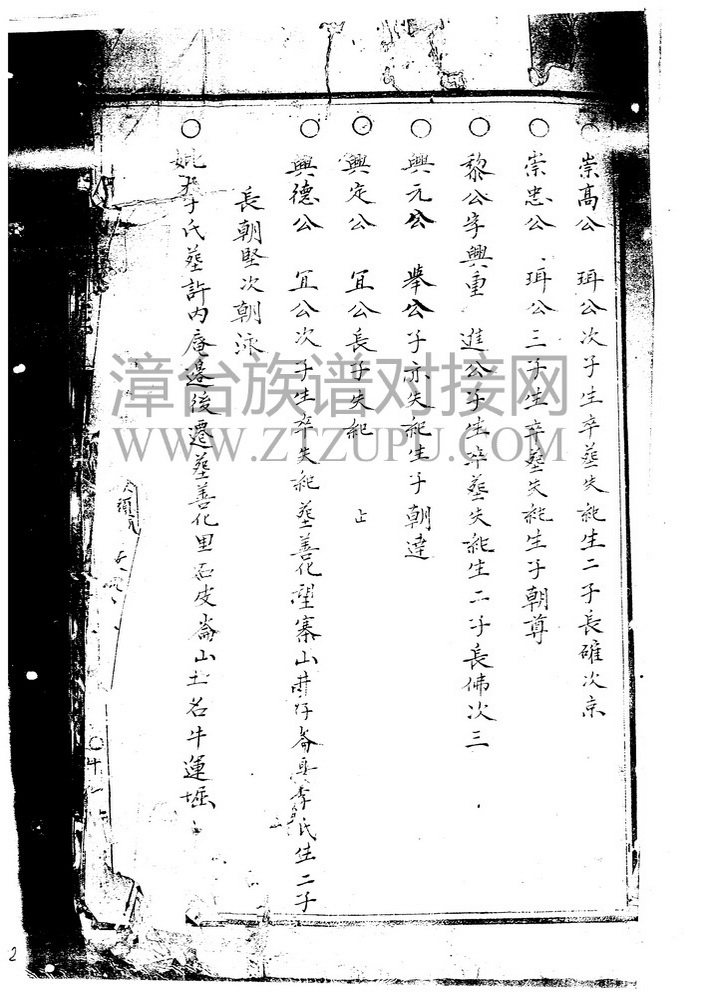 ○崇高公 珥公次子生卒葬失紀生二子長確次京
○崇忠公 珥公三子生卒葬失紀生子朝尊
○黎公字興重 進公子生卒葬失紀生二子長佛次三
○興元公 舉公子亦失紀生子朝達
○興定公 宜公長子失紀 止
○興德公 宜公次子生卒失紀葬善化望寨山崙李氏生二子
長朝堅次朝泳
○妣李氏葬許內庵邊後遷葬善化里石皮崙山土名牛運堀
漳台族谱对接网
WWW.ZTZUPU.COM
2